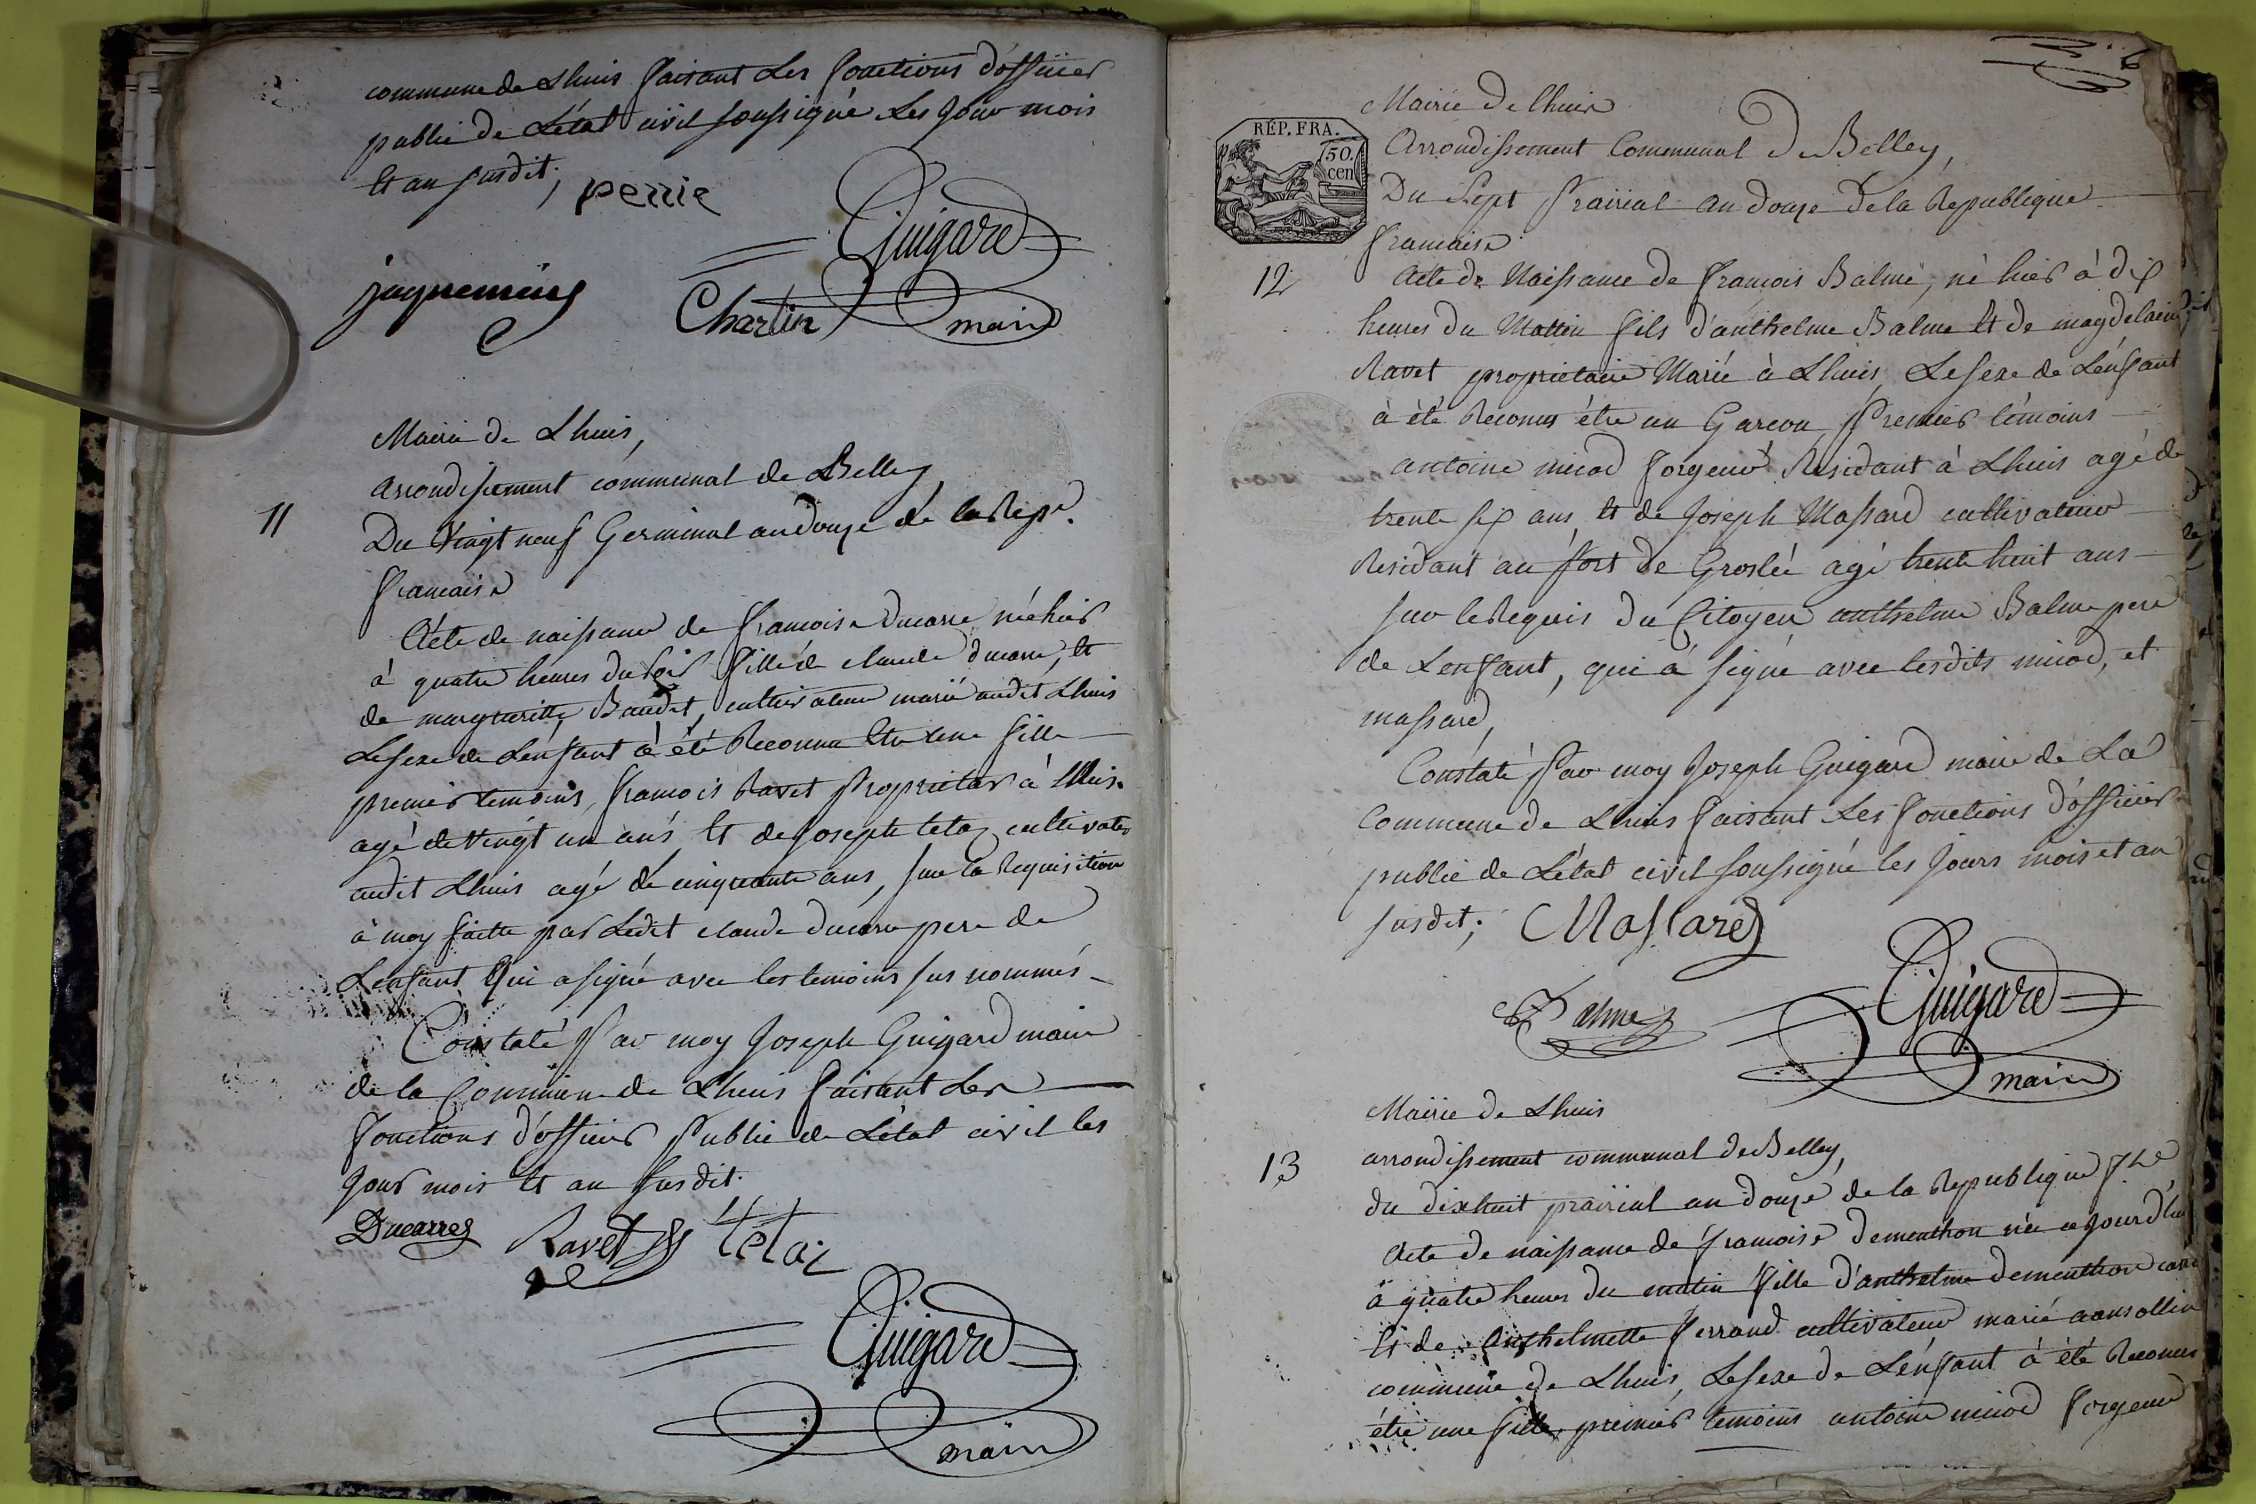 commune de Lhuis faisant Les fonctions d'officier
public de L'état civil soussigné Les Jour mois
Et an susdit.
perrie
Guigard
jaquemens
Chartin
maire
Mairie de Lhuis,
arrondissement communal de Belley
11
Du Vingt neuf Germinal an douze de la Rep.e
francaise
Acte de naissance de francoise Ducarre née hier
à quatre heures du soir fille de claude ducarre, Et
de margueritte Baudet, cultivateur marié audit Lhuis
Le sexe de L'enfant à été Reconnu Etre une fille
premier temoins, francois Ravet Proprietar à Lhuis.
agé de vingt un ans Et de Joseph tetaz cultivater
audit Lhuis agé de cinquante ans, sur la Requisition
à moy faitte par Ledit claude ducarre pere de
L'enfant Qui a signé avec les temoins sus nommés
Constaté Par moy Joseph Guigard maire
de la Commune de Lhuis faisant Les
fonctions d'officier Public de L'état civil les
Jour mois Et an susdit.
Ducarre
Ravet
tetaz
Guigard
maire
6
Mairie De lhuis
RÉP. FRA.
50.
cen
Arrondissement Communal De Belley,
Du Sept Prairial an douze De la Republique
francaise
12
Acte de Naissance de François Balme, né hier à dix
heures du Matin fils d'anthelme Balme Et de magdelaine
Ravet proprietaire Marié à Lhuis, Le sexe de L'enfant
à été Reconnu être un Garcon Premier témoins
antoine miod forgeur Residant à Lhuis agé de
trente six ans Et de Joseph Massard cultivateur
Residant au Port de Groslée agé trente huit ans
sur le Requis Du Citoyen anthelme Balme pere
de L'enfant, qui a signé avec lesdits miod, et
massard,
Constaté Par moy Joseph Guigard maire de La
Commune de Lhuis faisant Les fonctions d'officier
public de L'état civil soussigné les Jours mois et an
susdit;
Massard
Balme
Guigard
maire
Mairie de Lhuis
arrondissement communal de Belley,
13
du dixhuit prairial an douze de la Republique
Acte de naissance de francoise dementhon née ce jourd'hui
à quatre heures du matin fille d'anthelme dementhon
Et de Anthelmette ferrand cultivateur marié a ansollin
commune de Lhuis, Le sexe de L'enfant à été Reconnu
être une fille, premier temoins antoine miod forgeur